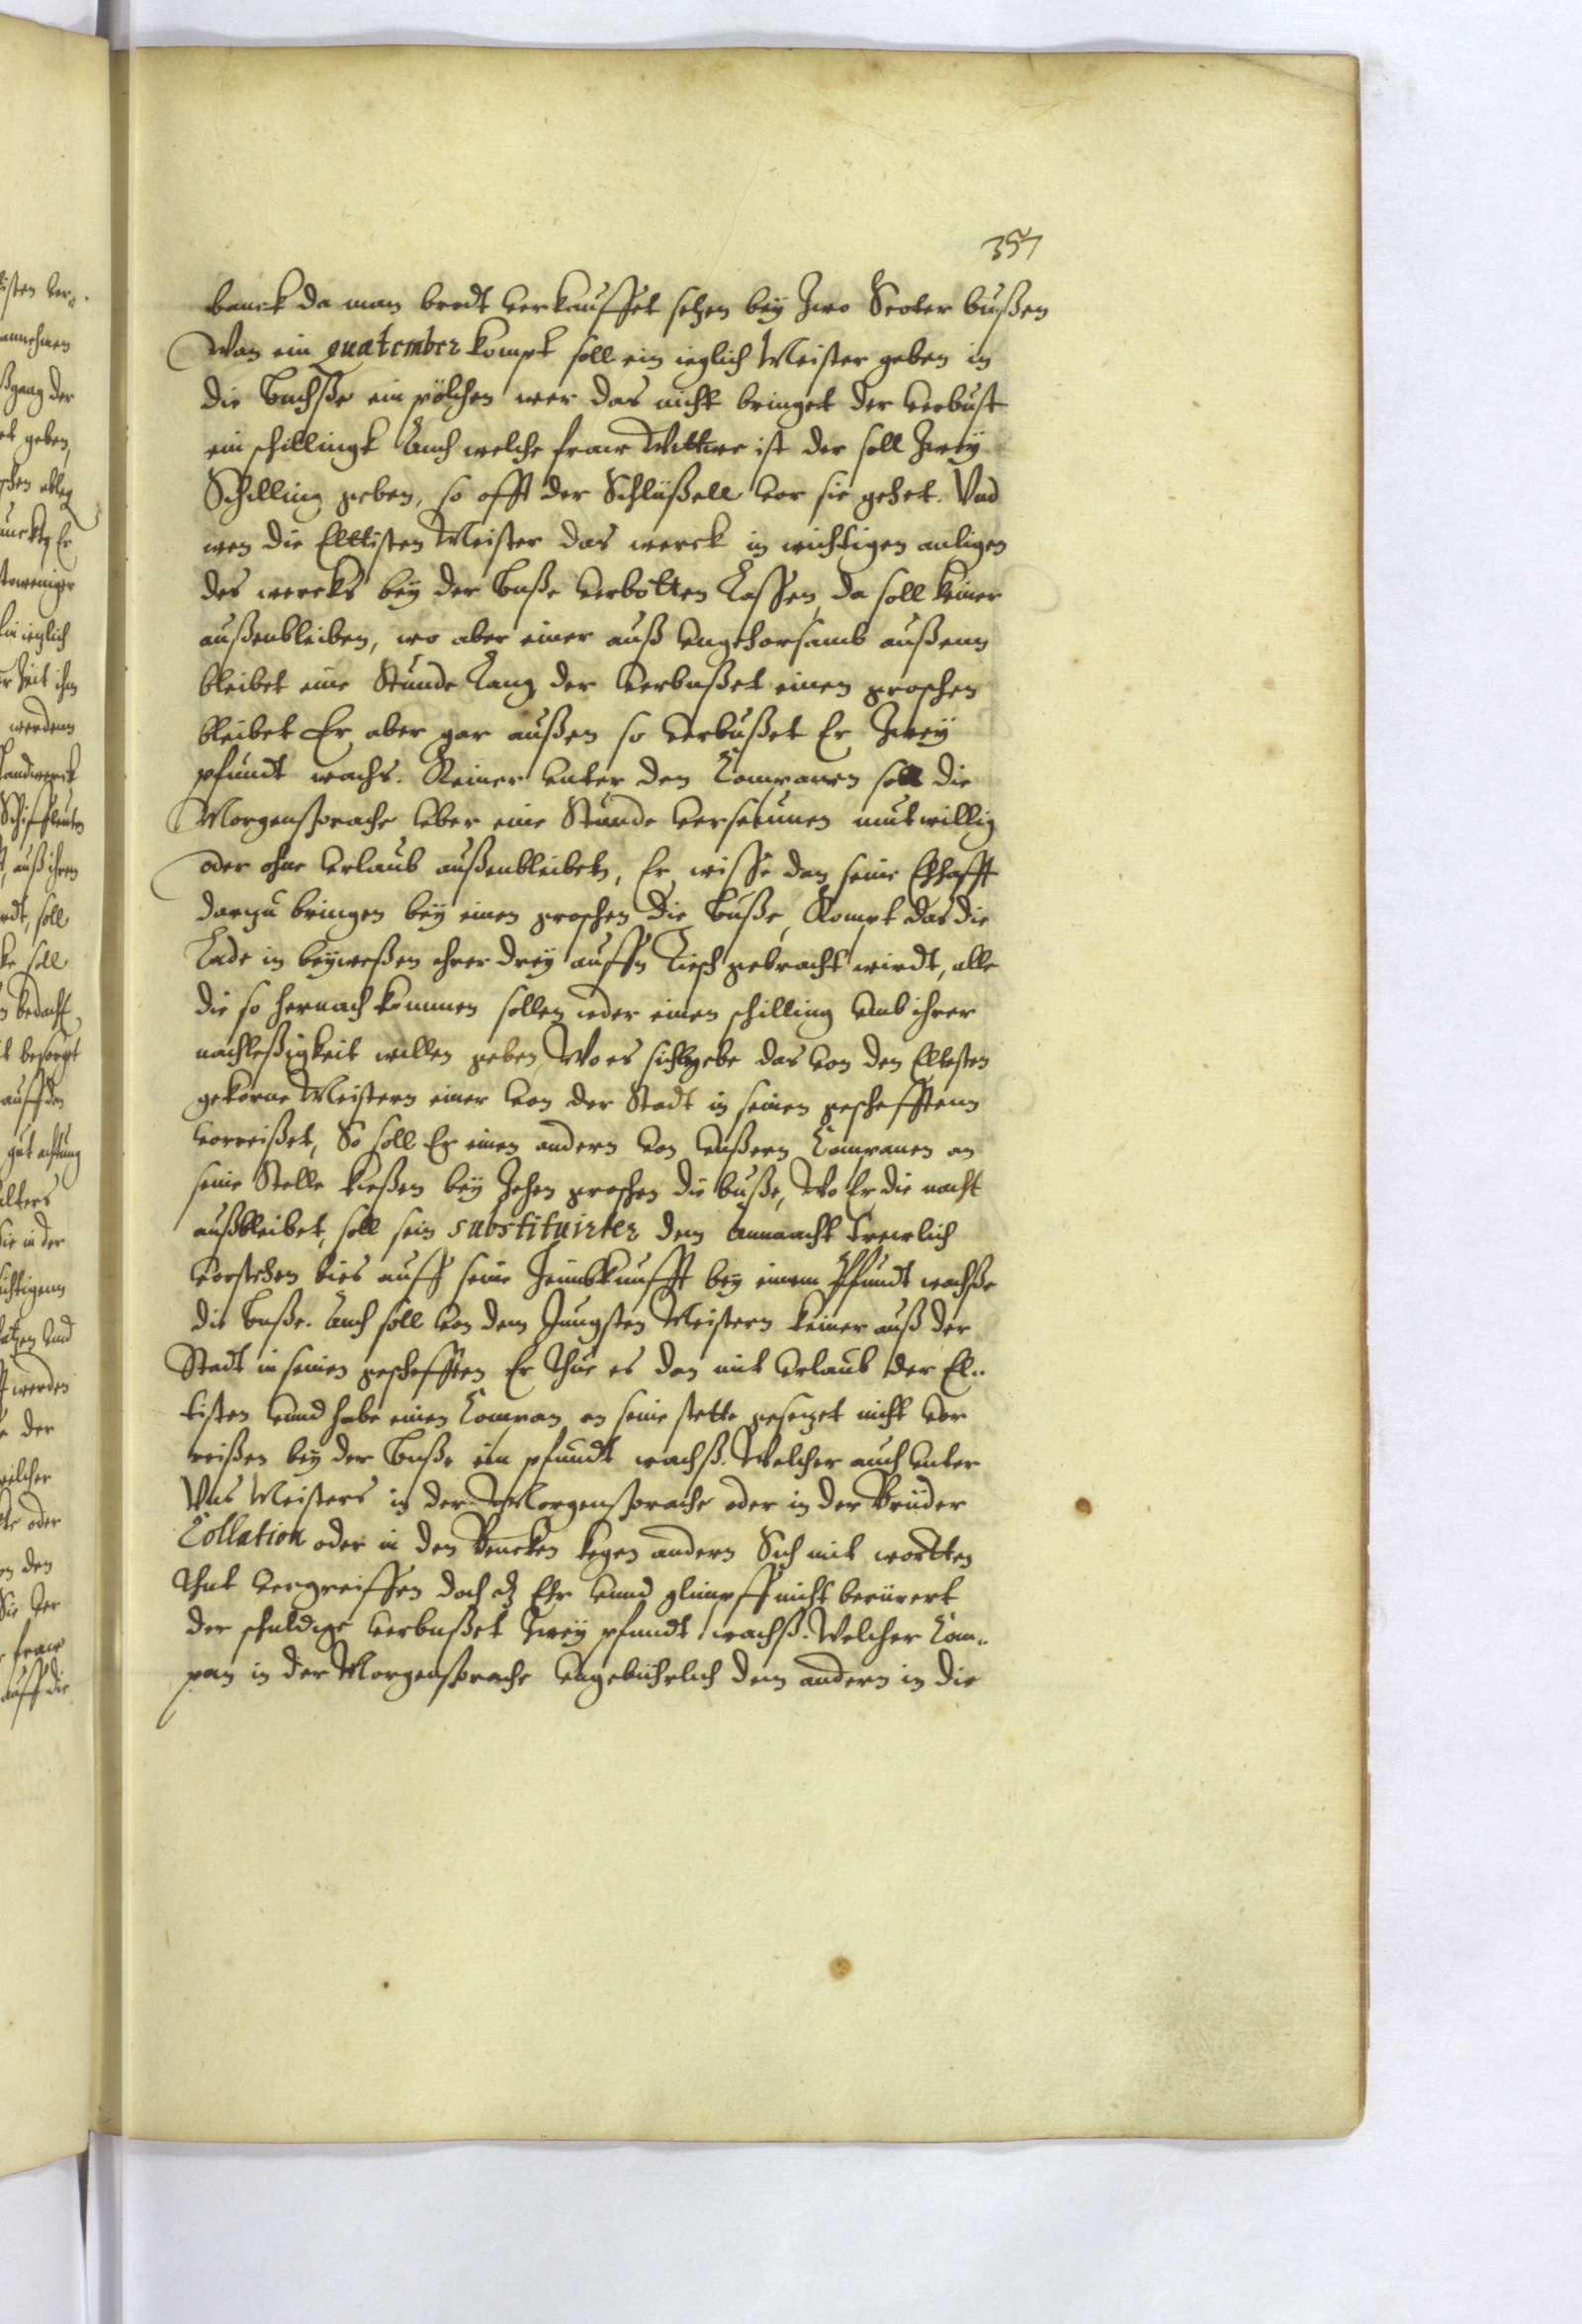 357
banck da man brodt verkauffet sehen bey Zwo Scoter bußen
Wan ein quatember kompt soll ein ieglich Meister geben in
die Buchße ein pölchen wer das nicht bringet der verbust
ein schillingk Auch welche fraw Wittwe ist der soll Zwey
Schilling geben, so offt der Schlüßell vor sie gehet. Vnd
wen die Elltisten Meister das werck in wichtigen anligen
des wercks bey der Buße verbotten Lassen, da soll keiner
außenbleiben, wo aber einer auß vngehorsamb außenn
bleibet eine Stunde Lang der verbußet einen groschen
bleibet Er aber gar außen so verbußet Er Zwey
pfundt wachs. Keiner vnter den Companen soll die
Morgensprache vber eine Stunde verseumen mutwillig
oder ohne verlaub außenbleiben, Er wisse dan seine Ehhafft
darzu bringen bey einen groschen die Buße, Kompt das die
Lade in beyweßen ehrer drey auffn Tisch gebracht wirdt, alle
die so hernach kommen sollen ieder einen schilling vmb ihrer
nachleßigkeit willen geben, Wo es sich begebe das von den Elltesten
gekorne Meistern einer von der Stadt in seinen geschefftenn
vorreißet, So soll Er einen andern von vnßern Companen an
seine Stelle kießen bey Zehen groschen die buße, Wo Er die nacht
außbleibet, soll sein substituirter dem Ammacht trewlich
vorstehen bies auff seine Heimbkunfft bey einem Pfundt wachße
die Buße. Auch soll von dem Jungsten Meistern keiner auß der
Stadt in seinen geschefften Er thue es dan mit verlaub der El-
tisten vnnd habe einen Compan an seine stette gesezet nicht vor
reißen bey der Buße ein pfundt wachß. Welcher auch vnter
Vns Meisters in der Morgensprache oder in der Brüder
Collation oder in den Bencken kegen andern Sich mit wortten
thut vergreiffen doch dz Ehr vnnd glimpff nicht berürert
der schuldige verbußet Zwey pfundt wachß. Welcher Com-
pan in der Morgensprache vngebührlich dem andern in die